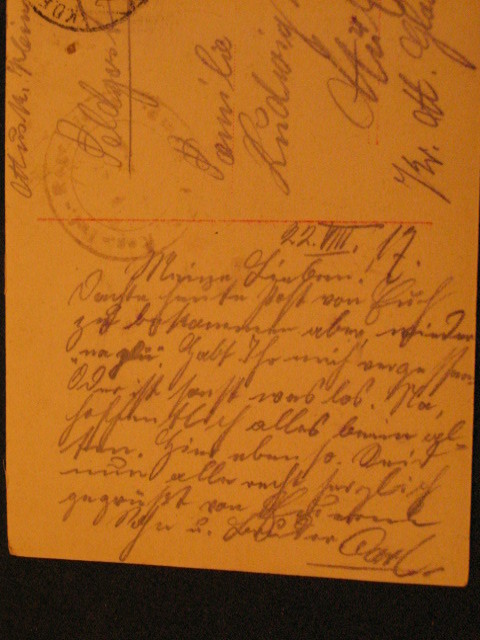 Musk. Klein
Feldpost
Familie
Ludwig
22. VIII. 17.
Meine Lieben!
Dachte heute Post von Euch
zu bekommen aber wieder
Habt Ihr mich vergessen
Oder ist sonst was los. Na,
hoffentlich alles beim al-
ten. Hier eben so. Seid
nun alle recht herzlich
gegrüßt von Eurem
Sohn u. Bruder Carl